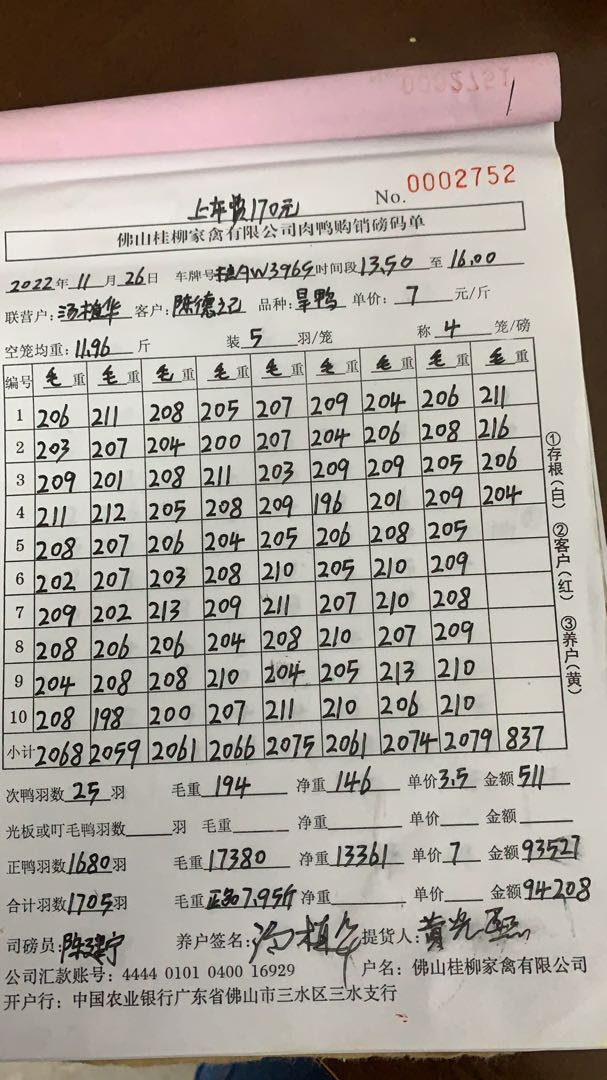 0002751
1
上车费170元
No. 0002752
佛山桂柳家禽有限公司肉鸭购销磅码单
2022年11月26日 车牌号桂AW3965时间段13.50至16.00
联营户:汤植华 客户:陈德记 品种:旱鸭 单价:7元/斤
空笼均重:11.96斤 装5羽/笼 称4笼/磅
编号 毛重 毛重 毛重 毛重 毛重 毛重 毛重 毛重 毛重
1 206 211 208 205 207 209 204 206 211
2 203 207 204 200 207 204 206 208 216
3 209 201 208 211 203 209 209 205 206
4 211 212 205 208 209 196 201 209 204
5 208 207 206 204 205 206 208 205
6 202 207 203 208 210 205 210 209
7 209 202 213 209 211 207 210 208
8 208 206 206 204 208 210 207 209
9 204 208 208 210 204 205 213 210
10 208 198 200 207 211 210 206 210
小计 2068 2059 2061 2066 2075 2061 2074 2079 837
①存根(白) ②客户(红) ③养户(黄)
次鸭羽数25羽 毛重194 净重146 单价3.5 金额511
光板或叮毛鸭羽数 羽 毛重 净重 单价 金额
正鸭羽数1680羽 毛重17380 净重13361 单价7 金额93527
合计羽数1705羽 毛重正均7.95斤 净重 单价 金额94208
司磅员:陈建宁 养户签名:汤植华 提货人:黄光熙
公司汇款账号:4444 0101 0400 16929 户名:佛山桂柳家禽有限公司
开户行:中国农业银行广东省佛山市三水区三水支行